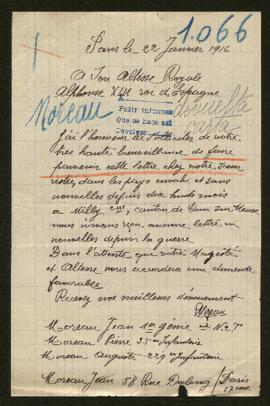 1.066
Paris le 22 Janvier 1916
A Son Altesse Royale
Alphonse XIII roi d'Espagne
Moreau
Pedir informes
Que se hace así
respuesta
carta
J'ai l'honneur de solliciter de votre
très haute bienveillance, de faire
parvenir cette lettre chez notre
restés, dans les pays envahi et sans
nouvelles depuis dix huit mois
à Milly canton de Dun sur Meuse
nous n'avons reçu aucune lettre, ni
nouvelles depuis la guerre
Dans l'attente que votre Majesté
et Altesse, nous accordera une demande
favorable
Recevez nos meilleurs dévouement
Moreau
Moreau Jean 1er génie
Moreau Pierre 35me Infanterie
Moreau auguste 229me Infanterie
Moreau Jean 58 Rue Dulong Paris
17eme